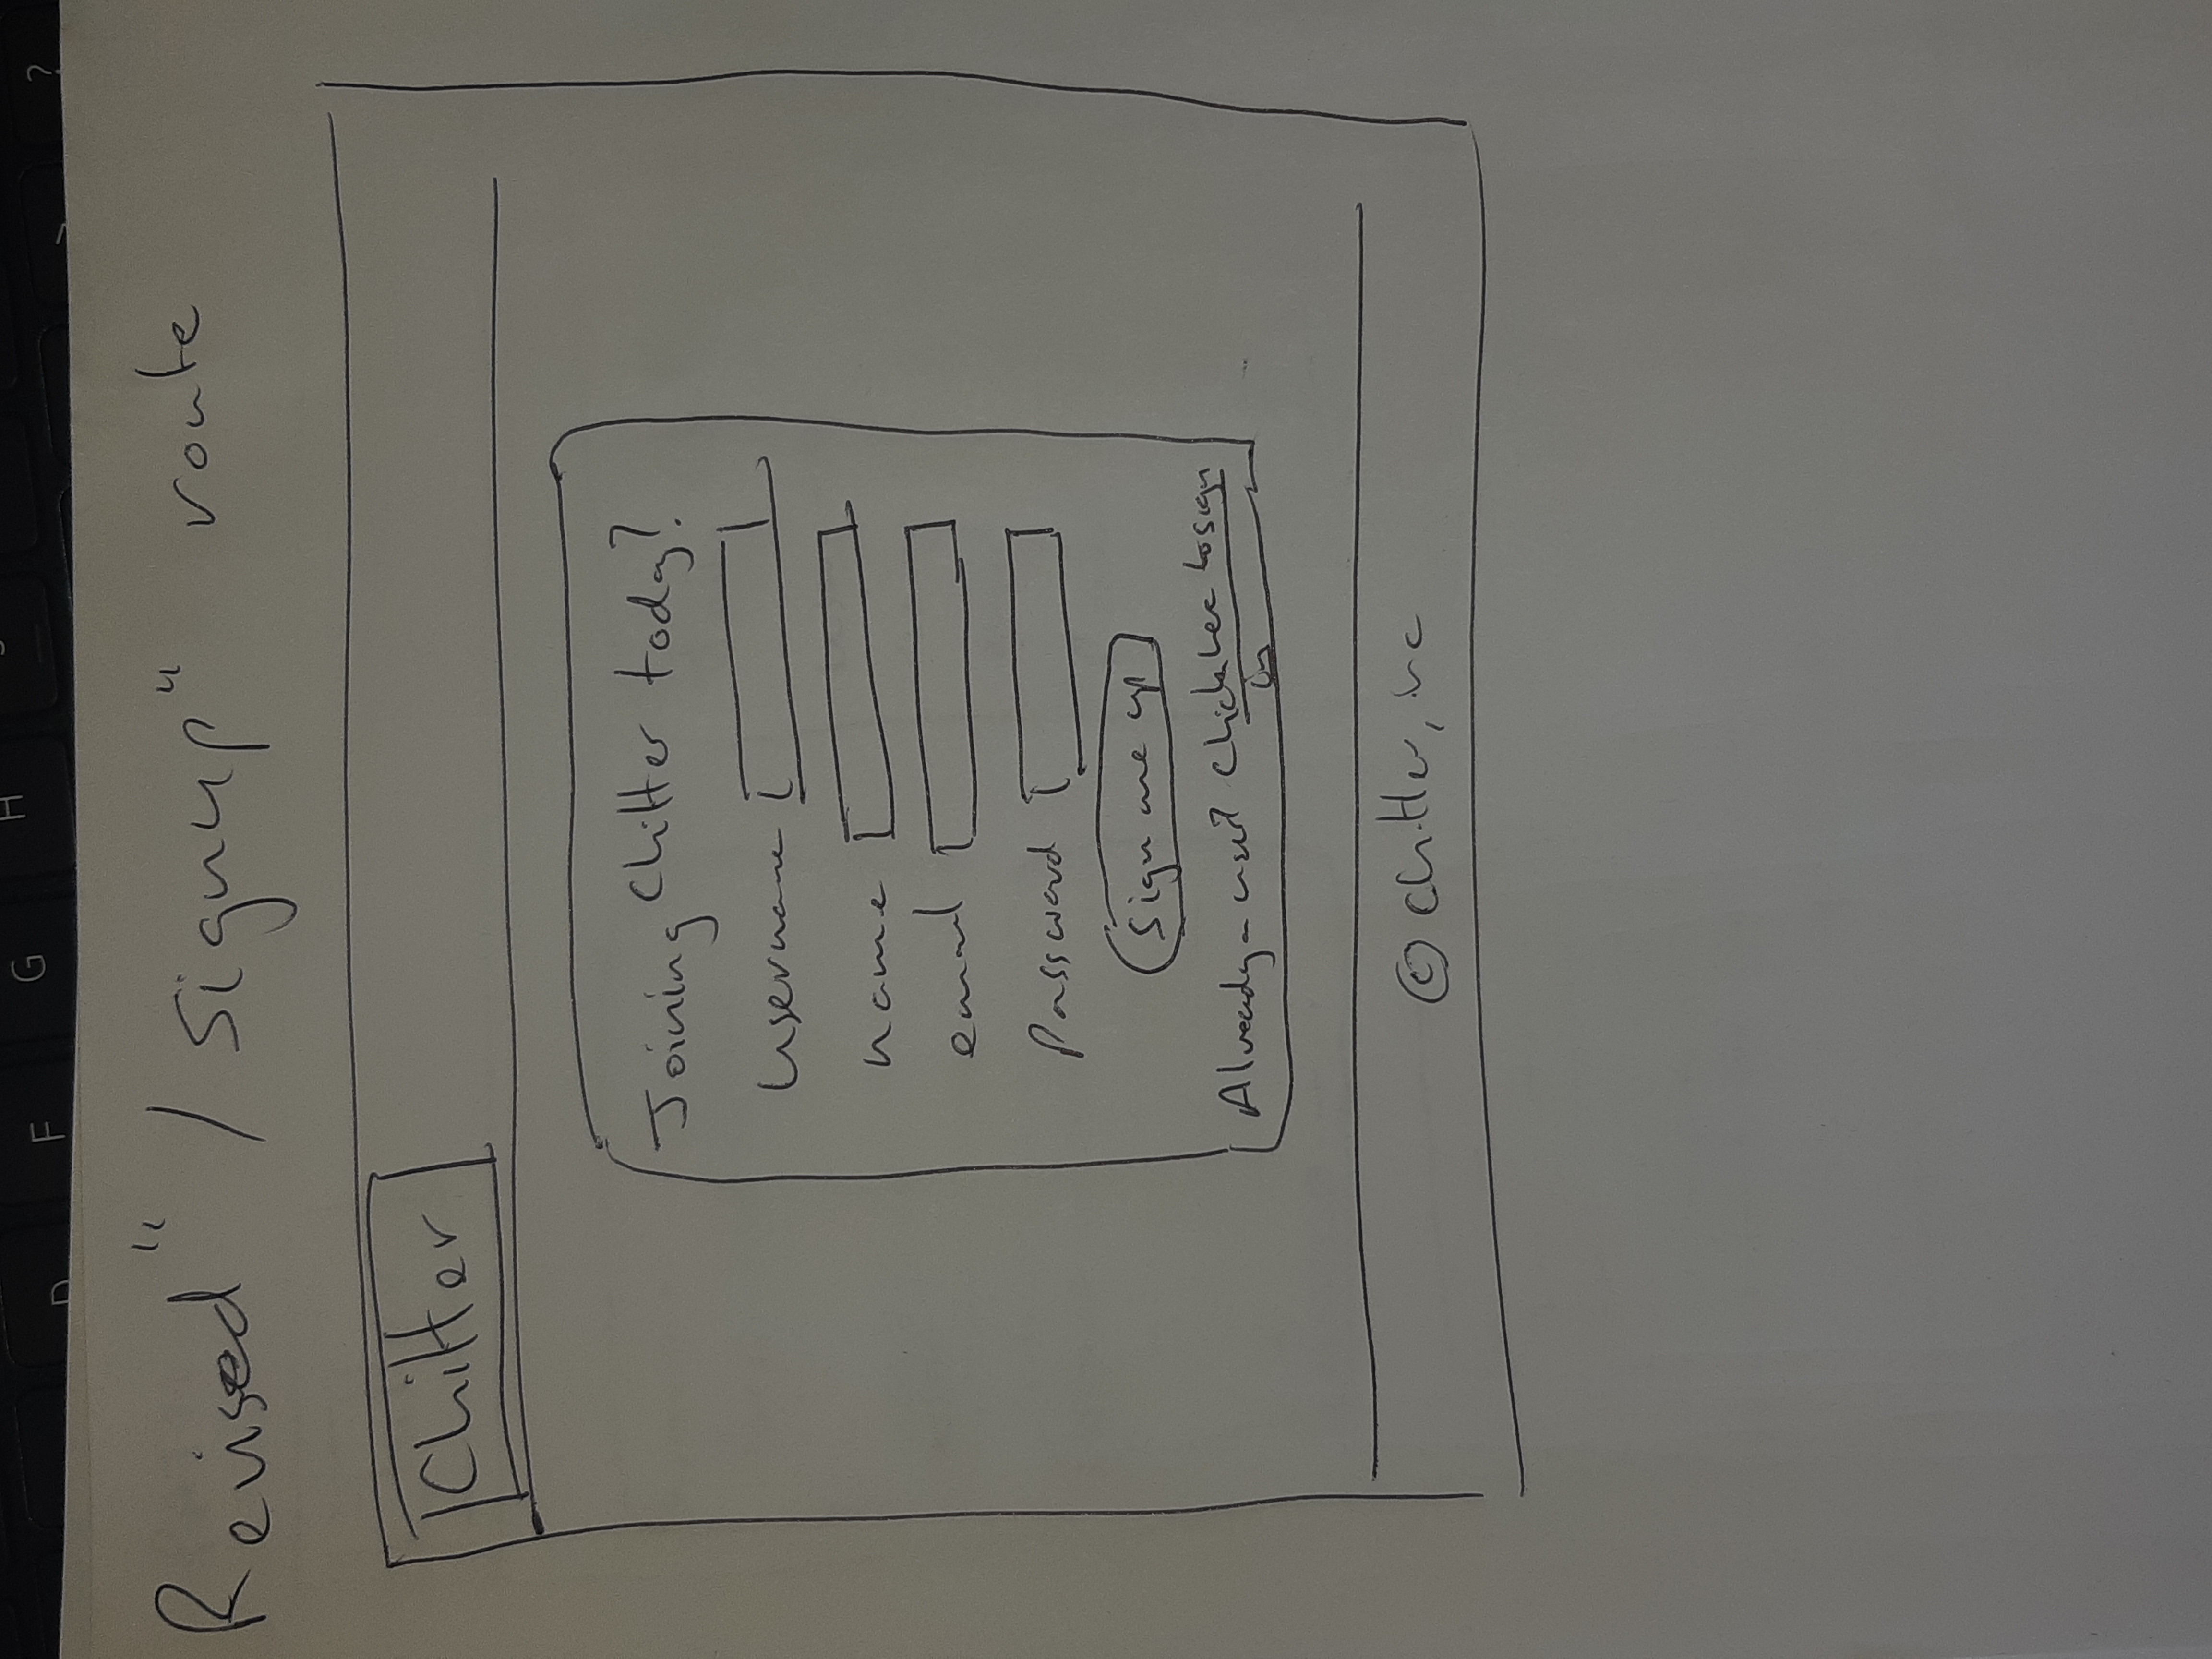 D F G H ?
Revised "/signup" route
Chitter
Joining Chitter today?
Username
name
email
Password
Sign me up
Already a user? Click here to sign
in
© Chitter, inc